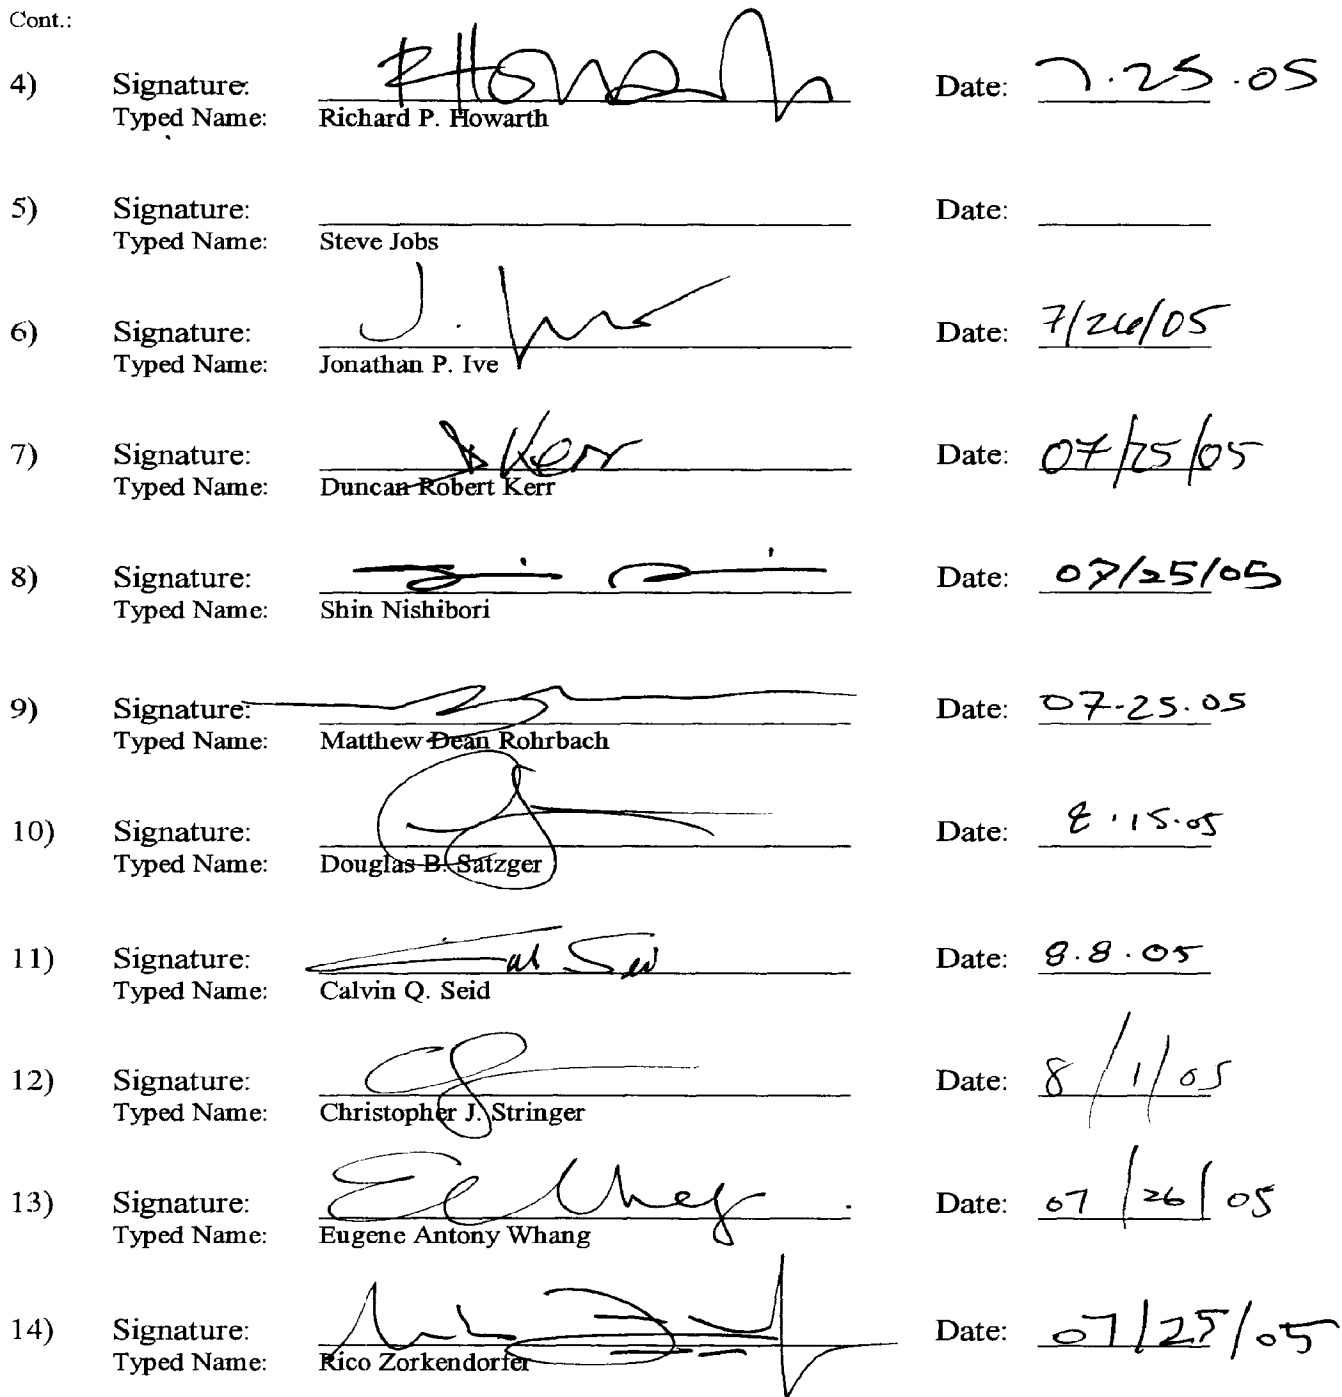 Cont.:
4) Signature: RHowarth Date: 7.25.05
Typed Name: Richard P. Howarth
5) Signature: Date:
Typed Name: Steve Jobs
6) Signature: J. Ive Date: 7/26/05
Typed Name: Jonathan P. Ive
7) Signature: DKerr Date: 07/25/05
Typed Name: Duncan Robert Kerr
8) Signature: Date: 07/25/05
Typed Name: Shin Nishibori
9) Signature: Date: 07-25.05
Typed Name: Matthew Dean Rohrbach
10) Signature: Date: 8.15.05
Typed Name: Douglas B. Satzger
11) Signature: Cal Seid Date: 8.8.05
Typed Name: Calvin Q. Seid
12) Signature: Date: 8/1/05
Typed Name: Christopher J. Stringer
13) Signature: Date: 07/26/05
Typed Name: Eugene Antony Whang
14) Signature: Date: 07/25/05
Typed Name: Rico Zorkendorfer